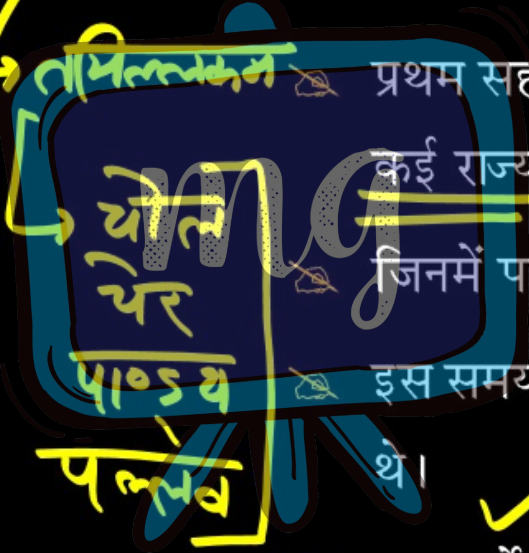 तमिल्लकम
चोल
चेर
पाण्ड्य
पल्लव
mg
प्रथम
कई
जिनमें
इस समय
थे।